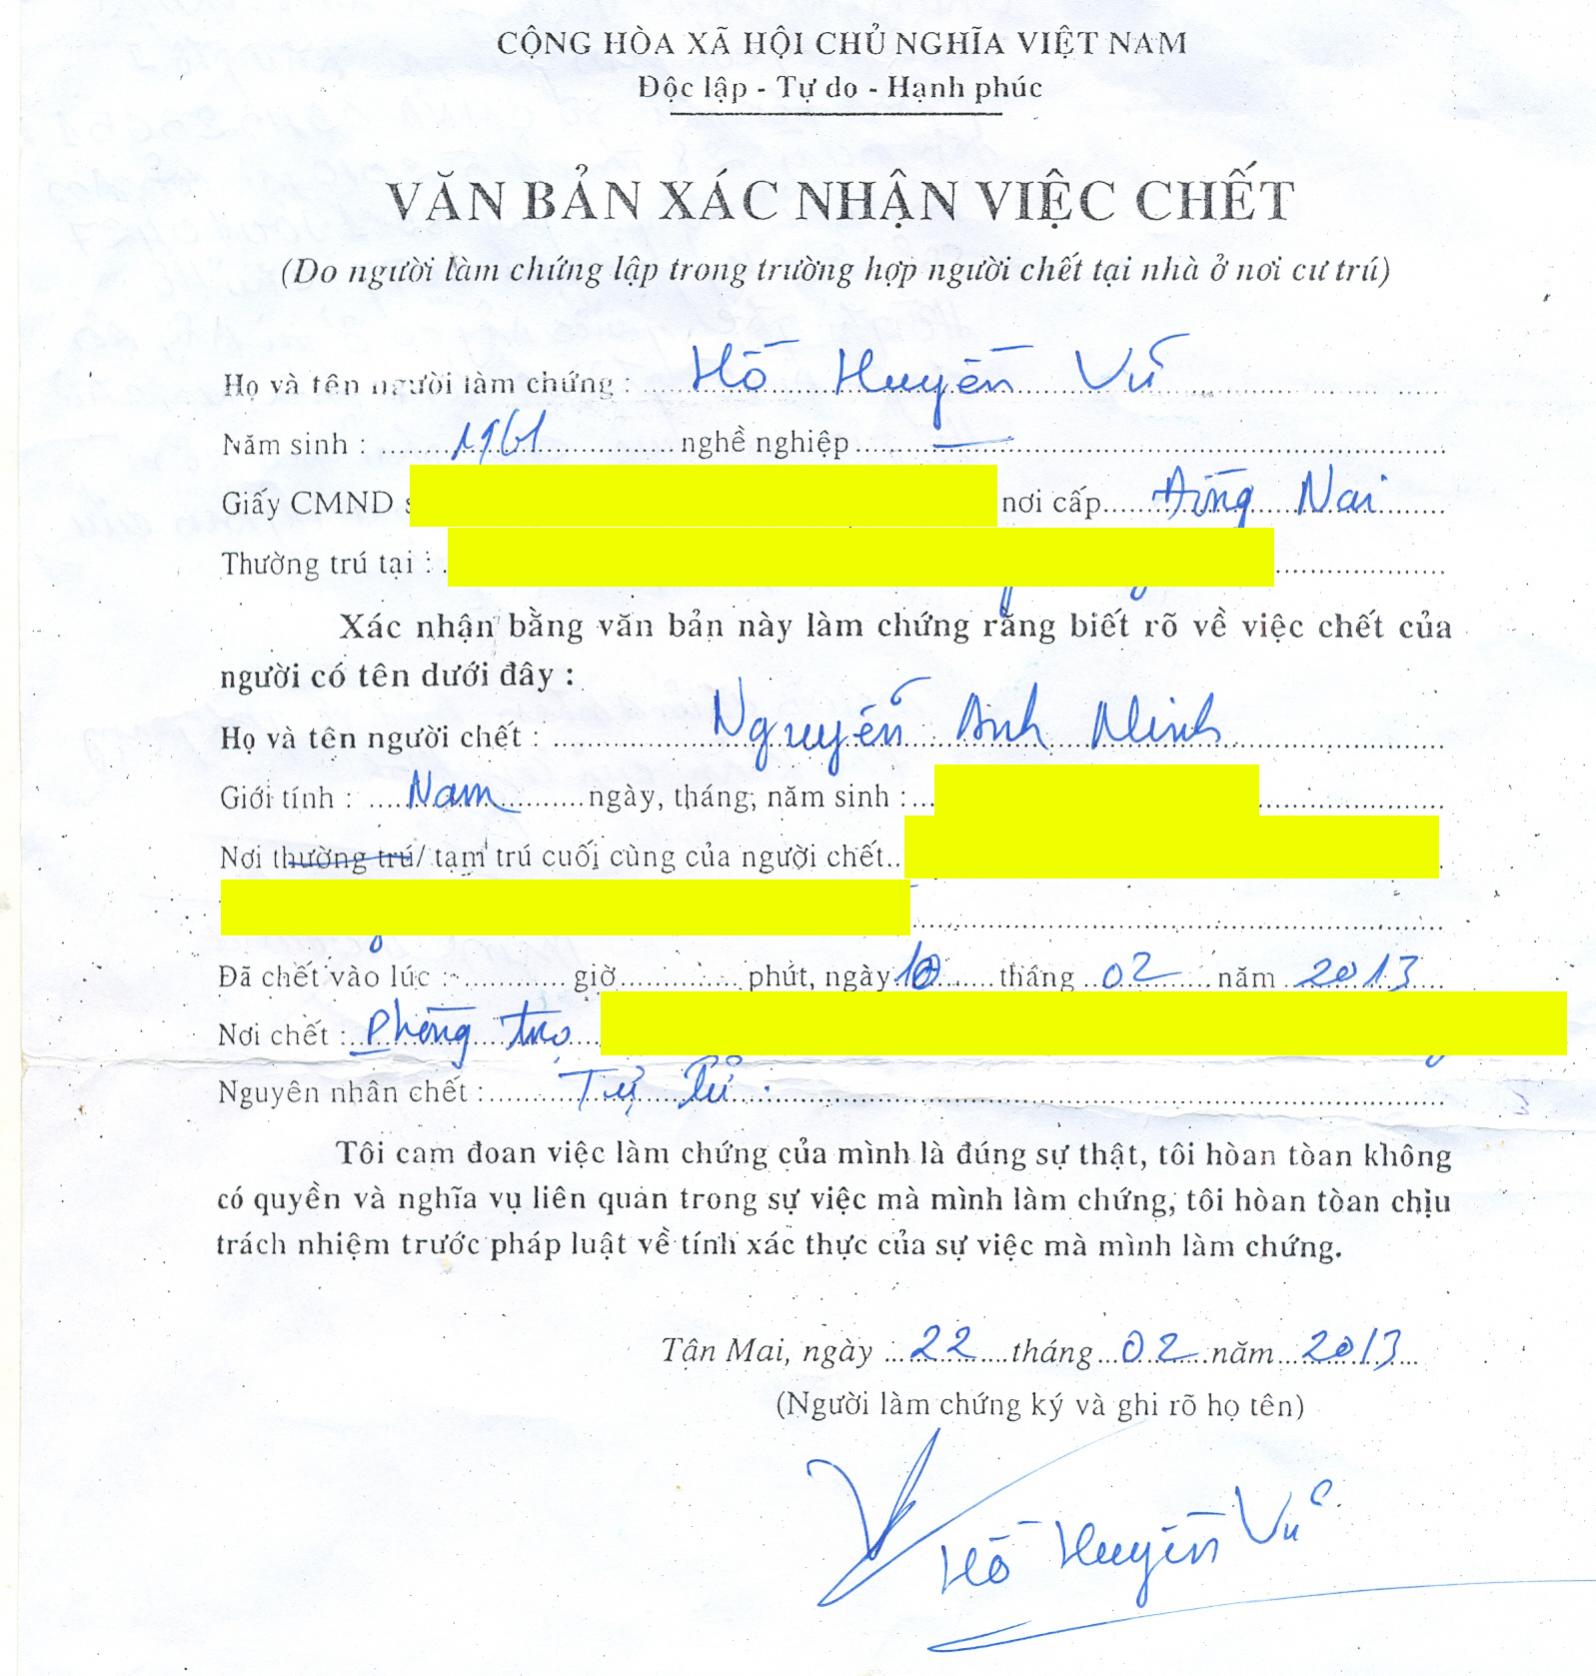 CỘNG HÒA XÃ HỘI CHỦ NGHĨA VIỆT NAM
Độc lập - Tự do - Hạnh phúc
VĂN BẢN XÁC NHẬN VIỆC CHẾT
(Do người làm chứng lập trong trường hợp người chết tại nhà ở nơi cư trú)
Họ và tên người làm chứng : Hồ Huyền Vũ
Năm sinh : 1961 nghề nghiệp —
Giấy CMND nơi cấp Đồng Nai
Thường trú tại :
Xác nhận bằng văn bản này làm chứng rằng biết rõ về việc chết của
người có tên dưới đây :
Họ và tên người chết : Nguyễn Anh Minh
Giới tính : Nam ngày, tháng, năm sinh :
Nơi thường trú/ tạm trú cuối cùng của người chết
Đã chết vào lúc : giờ phút, ngày 10 tháng 02 năm 2013
Nơi chết : Phòng trọ
Nguyên nhân chết : Tự tử.
Tôi cam đoan việc làm chứng của mình là đúng sự thật, tôi hòan tòan không
có quyền và nghĩa vụ liên quan trong sự việc mà mình làm chứng, tôi hòan tòan chịu
trách nhiệm trước pháp luật về tính xác thực của sự việc mà mình làm chứng.
Tận Mai, ngày 22 tháng 02 năm 2013
(Người làm chứng ký và ghi rõ họ tên)
Hồ Huyền Vũ